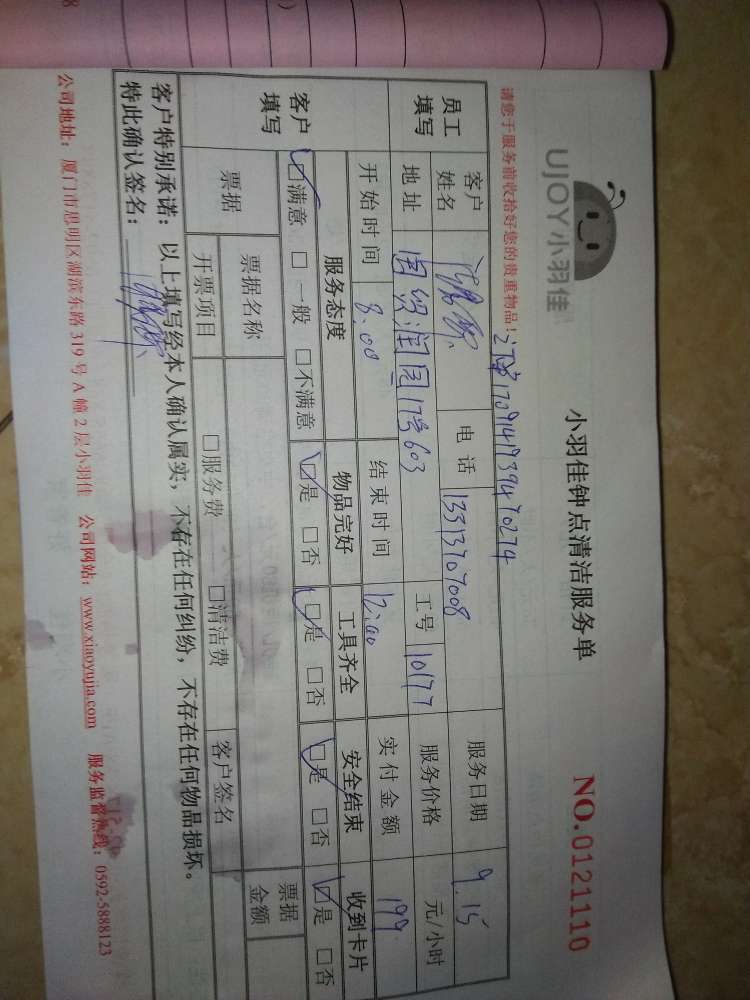 UJOY小羽佳
小羽佳钟点清洁服务单
NO.0121110
请您于服务前收拾好您的贵重物品!
1709141939470274
员工填写 客户姓名 电话 13313707008 服务日期 9.15
地址 国贸润园17号603 工号 10177 服务价格 元/小时
开始时间 8:00 结束时间 12:00 实付金额 199
客户填写 服务态度 物品完好 工具齐全 安全结束 收到卡片
☑满意 □一般 □不满意 ☑是 □否 ☑是 □否 ☑是 □否 ☑是 □否
票据 票据名称 客户签名 票据金额
开票项目 □服务费 □清洁费
客户特别承诺:以上填写经本人确认属实,不存在任何纠纷,不存在任何物品损坏。
特此确认签名:
公司地址:厦门市思明区湖滨东路319号A幢2层小羽佳 公司网站:www.xiaoyujia.com 服务监督热线:0592-5888123